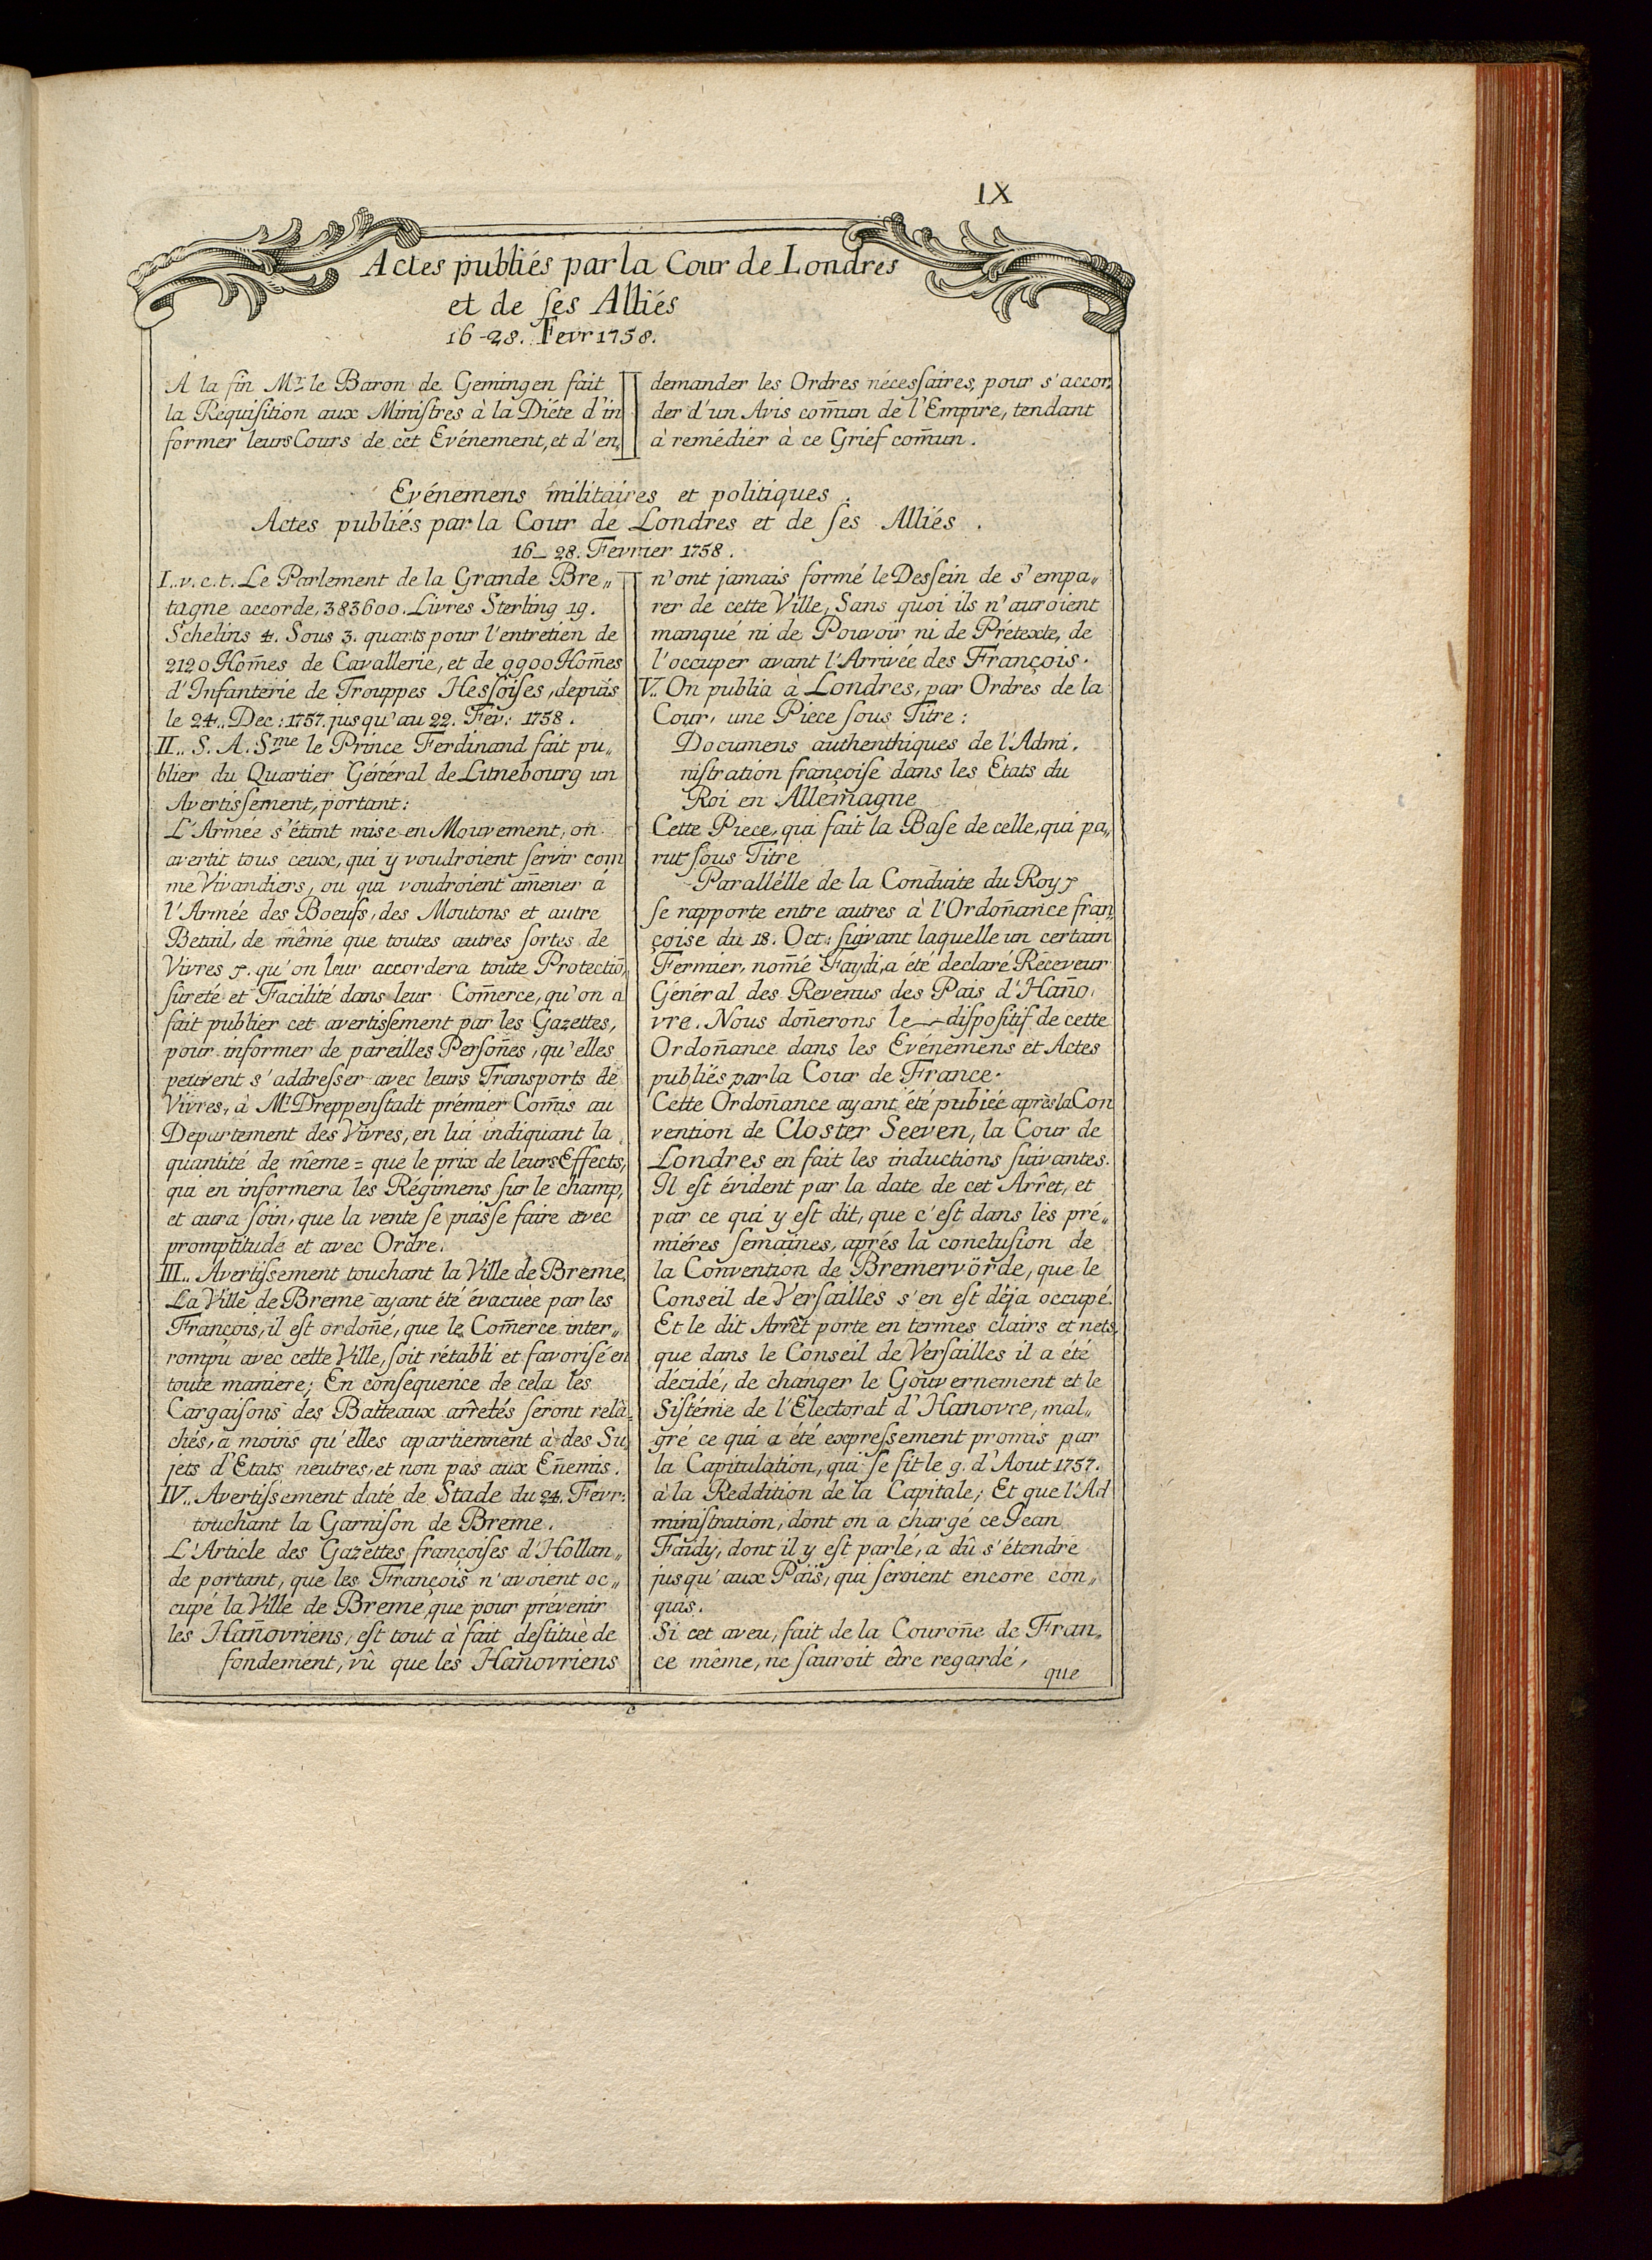 IX
Actes publiés par la Cour de Londres
et de ſes Alliés
16-28. Fevr 1758.
A la fin Mr. le Baron de Gemingen fait
la Réquiſition aux Miniſtres à la Diéte d'in
former leurs Cours de cet Evénement, et d'en„
demander les Ordres nécesſaires, pour s'accor„
der d'un Avis com̄un de l'Empire, tendant
à remédier à ce Grief com̄un.
Evénemens militaires et politiques.
Actes publiés par la Cour de Londres et de ſes Alliés.
16_28. Fevrier 1758.
I.. v. c. t. Le Parlement de la Grande Bre„
tagne accorde, 383600. Livres Sterling 19.
Schelins 4. Sous 3. quarts pour l'entretien de
2120 Hom̄es de Cavallerie, et de 9900 Hom̄es
d'Infanterie de Trouppes Hesſoiſes, depuis
le 24.. Dec: 1757. jusqu'au 22. Fev: 1758.
II.. S. A. Sme le Prince Ferdinand fait pu„
blier du Quartier Général de Lunebourg un
Avertisſement, portant:
L'Armée s'étant mise en Mouvement, on
avertit tous ceux, qui y voudroient ſervir com
me Vivandiers, ou qui voudroient am̄ener á
l'Armée des Boeufs, des Moutons et autre
Betail, de même que toutes autres ſortes de
Vivres &. qu'on leur accordera toute Protectiō,
ſûreté et Facilité dans leur Com̄erce, qu'on a
fait publier cet avertisſement par les Gazettes,
pour informer de pareilles Perſon̄es, qu'elles
peuvent s'addreſser avec leurs Transports de
Vivres, à Mr. Dreppenſtadt prémier Com̄is au
Departement des Vivres, en lui indiquant la
quantité de même = que le prix de leurs Effects,
qui en informera les Régimens ſur le champ,
et aura ſoin, que la vente ſe puisſe faire avec
promptitude et avec Ordre.
III.. Avertisſement touchant la Ville de Breme.
La Ville de Breme ayant été évacuèe par les
François, il est ordon̄é, que le Com̄erce inter„
rompu avec cette Ville, ſoit rétabli et favoriſé en
toute maniere; En conſequence de cela les
Cargaiſons des Batteaux arrêtés ſeront relâ=
chés, a moins qu'elles apartiennent à des Su
jets d'Etats neutres, et non pas aux En̄emis.
IV.. Avertisſement daté de Stade du 24. Fevr:
touchant la Garniſon de Breme.
L'Article des Gazettes françoiſes d'Hollan„
de portant, que les François n'avoient oc„
cupé la Ville de Breme, que pour prévenir
les Han̄ovriens, eſt tout à fait deſtituè de
fondement, vû que les Han̄ovriens
n'ont jamais formé le Desſein de s'empa„
rer de cette Ville, Sans quoi ils n'auroient
manqué ni de Pouvoir ni de Prétexte, de
l'occuper avant l'Arrivée des François.
V.. On publia à Londres, par Ordres de la
Cour, une Piece ſous Titre:
Documens authenthiques de l'Admi.
niſtration françoiſe dans les Etats du
Roi en Allemagne
Cette Piece, qui fait la Baſe de celle, qui pa„
rut ſous Titre
Parallélle de la Conduite du Roy &
ſe rapporte entre autres à l'Ordon̄ance fran„
çoise du 18. Oct: ſuivant laquelle un certain
Fermier, nom̄é Faydi, a été declaré Réceveur
Général des Revenus des Pais d'Han̄o.
vre. Nous don̄erons le diſpoſitif de cette
Ordon̄ance dans les Evénemens et Actes
publiés par la Cour de France.
Cette Ordon̄ance ayant été pubiée après la Con
vention de Closter Seeven, la Cour de
Londres en fait les inductions ſuivantes.
Il eſt évident par la date de cet Arrêt, et
par ce qui y eſt dit, que c'eſt dans les pré„
miéres ſemaines, aprés la concluſion de
la Convention de Bremervörde, que le
Conseil de Verſailles s'en eſt déja occupé.
Et le dit Arrêt porte en termes clairs et nets,
que dans le Conseil de Verſailles il a été
décidé, de changer le Gouvernement et le
Siſtéme de l'Electorat d'Hanovre, mal„
gré ce qui a été expreſsement promis par
la Capitulation, qui ſe fit le 9. d'Aout 1757.
à la Reddition de la Capitale; Et que l'Ad
miniſtration, dont on a chargé ce Jean
Faidy, dont il y eſt parlé, a dû s'étendre
jusqu'aux Païs, qui ſeroient encore con„
quis.
Si cet aveu, fait de la Couron̄e de Fran„
ce même, ne ſauroit être regardé,
que
c